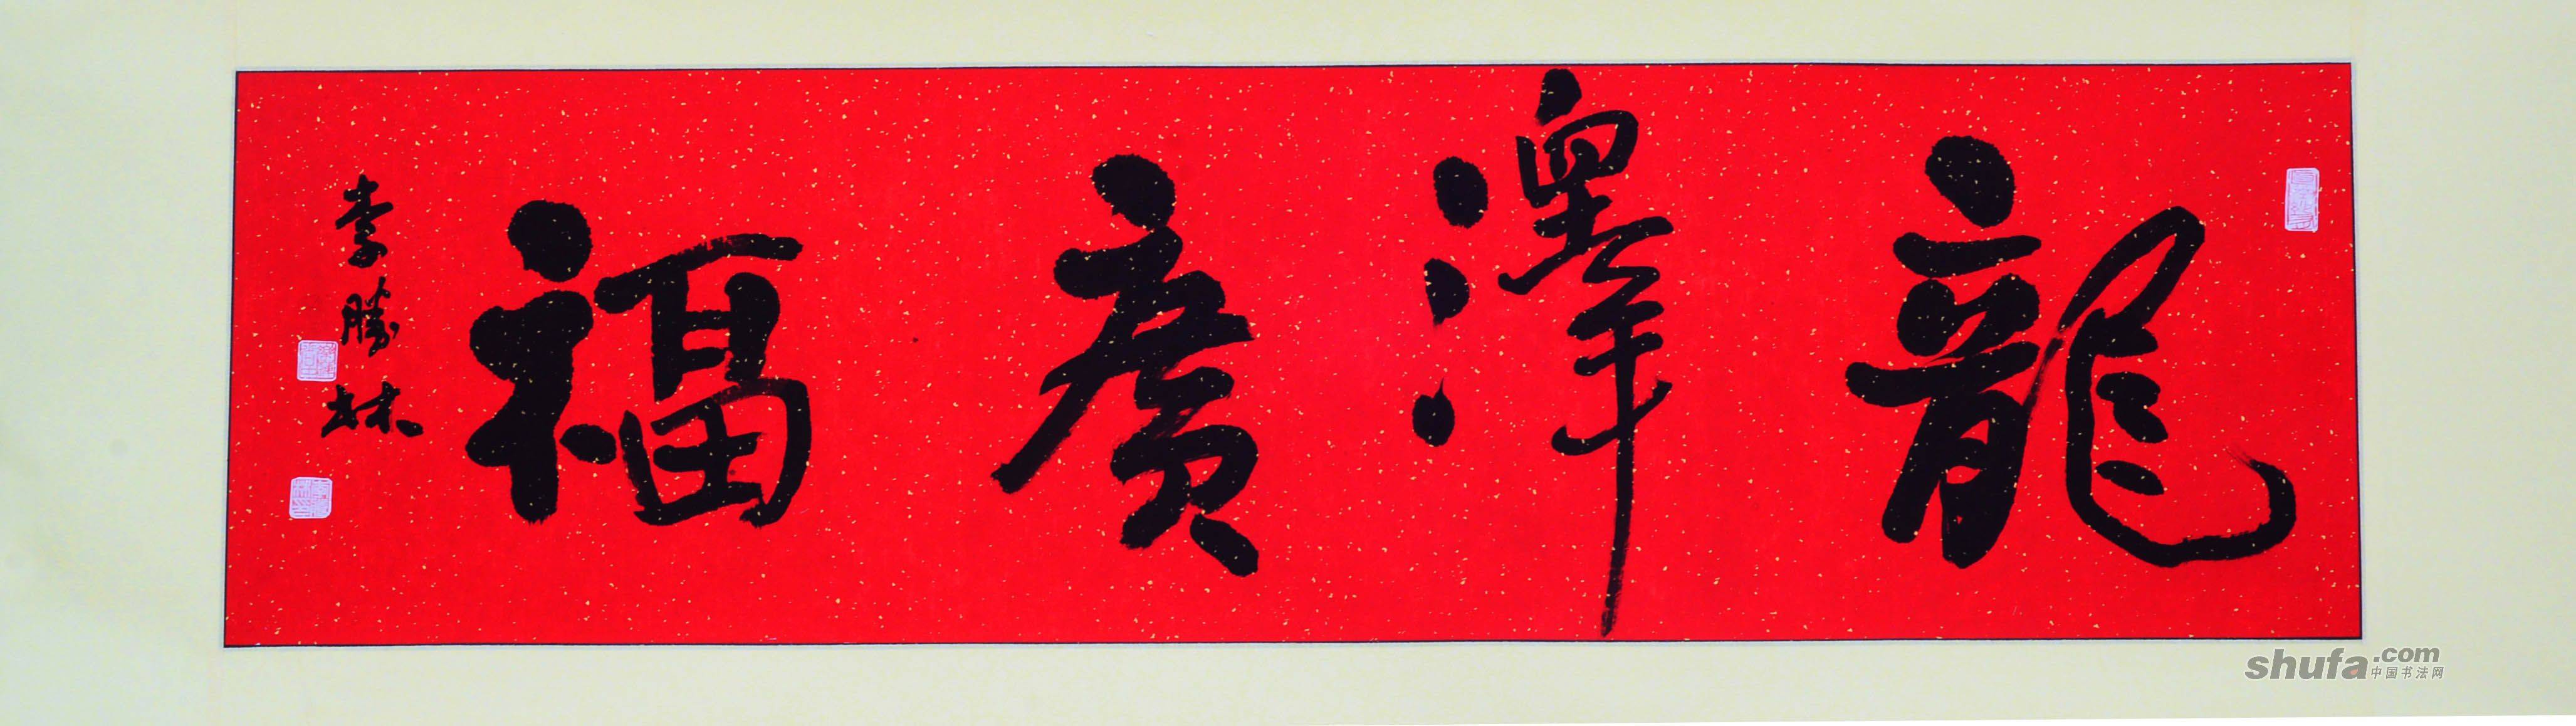 龍澤廣福
李勝林
shufa.com
中国书法网